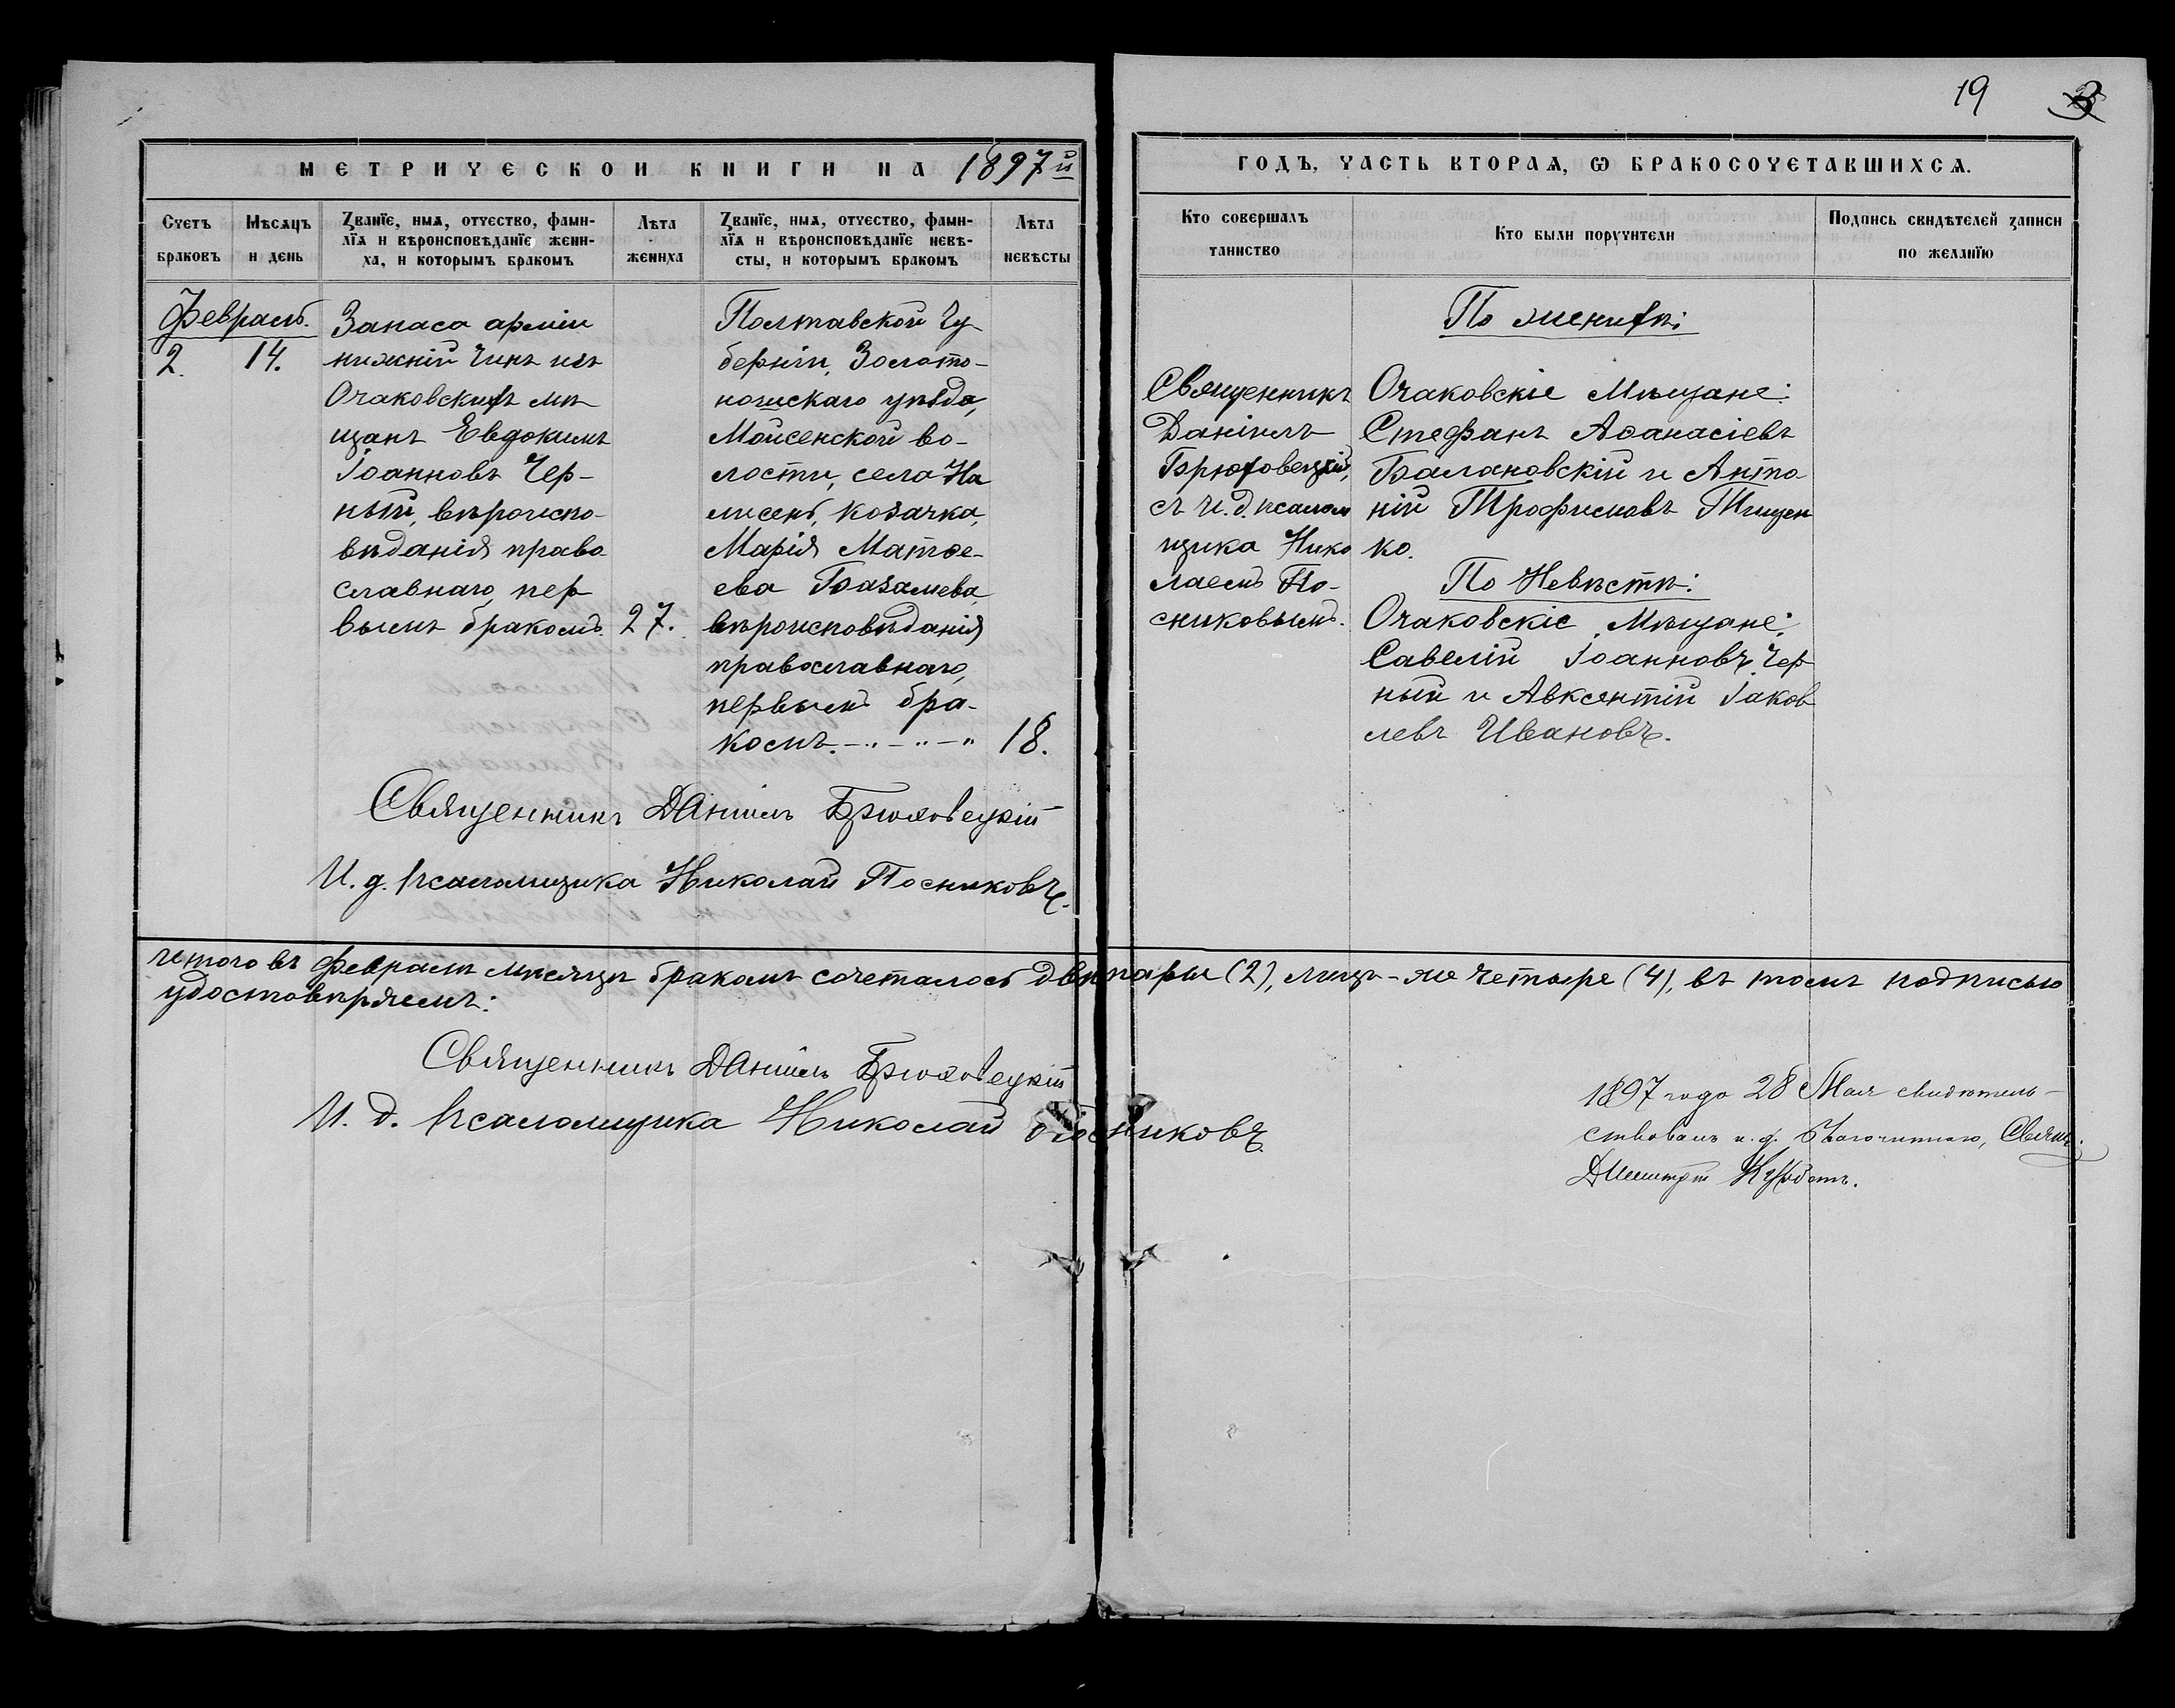 19 3
МЕТРИЧЕСКОЙ КНИГИ НА 1897й
ГОДЪ, ЧАСТЬ ВТОРАѦ, Ѡ БРАКОСОЧЕТАВШИХСѦ.
Счетъ браковъ
Мѣсѧцъ и день
Званїе, имѧ, отчество, фами-
лїѧ и вѣроисповѣданїе жени-
ха, и которымъ бракомъ
Лѣта жениха
Званїе, имѧ, отчество, фами-
лїѧ и вѣроисповѣданїе невѣ-
сты, и которымъ бракомъ
Лѣта невѣсты
Кто совершалъ таинство
Кто были поручители
Подпись свидѣтелей записи по желанїю
Февраль.
2. 14.
Запаса арміи
нижній чинъ изъ
Очаковскихъ мѣ
щанъ Евдокимъ
Іоанновъ Чер-
ный, вѣроиспо-
вѣданія право
славнаго, пер
вымъ бракомъ. 27.
Полтавской Гу-
берніи, Золото-
ношскаго уѣзда,
Мойсенской во-
лости, села На
лисень, козачка,
Марія Матѳе-
ева Базалиева,
вѣроисповѣданія
православнаго,
первымъ бра-
комъ. 18.
Священникъ
Даніилъ
Брюховецкій,
съ и. д. псалом
щика Нико
лаемъ По-
сниковымъ.
По женихѣ:
Очаковскіе Мѣщане:
Стефанъ Аѳанасіевъ
Балановскій и Анто-
ній Трофимовъ Тищен
ко.
По Невѣстѣ:
Очаковскіе Мѣщане:
Савелій Іоанновъ Чер
ный и Авксентій Іаков
левъ Ивановъ.
Священникъ Даніилъ Брюховецкій
И. д. псаломщика Николай Посниковъ.
Итого въ Февралѣ мѣсяцѣ бракомъ сочеталось двѣ пары (2), лицъ-же четыре (4), въ томъ подписью
удостовѣряемъ:
Священникъ Даніилъ Брюховецкій
И. д. псаломщика Николай Посниковъ.
1897 года 28 Мая свидѣтель-
ствовалъ и. д. Благочиннаго, Свящ.
Димитрій